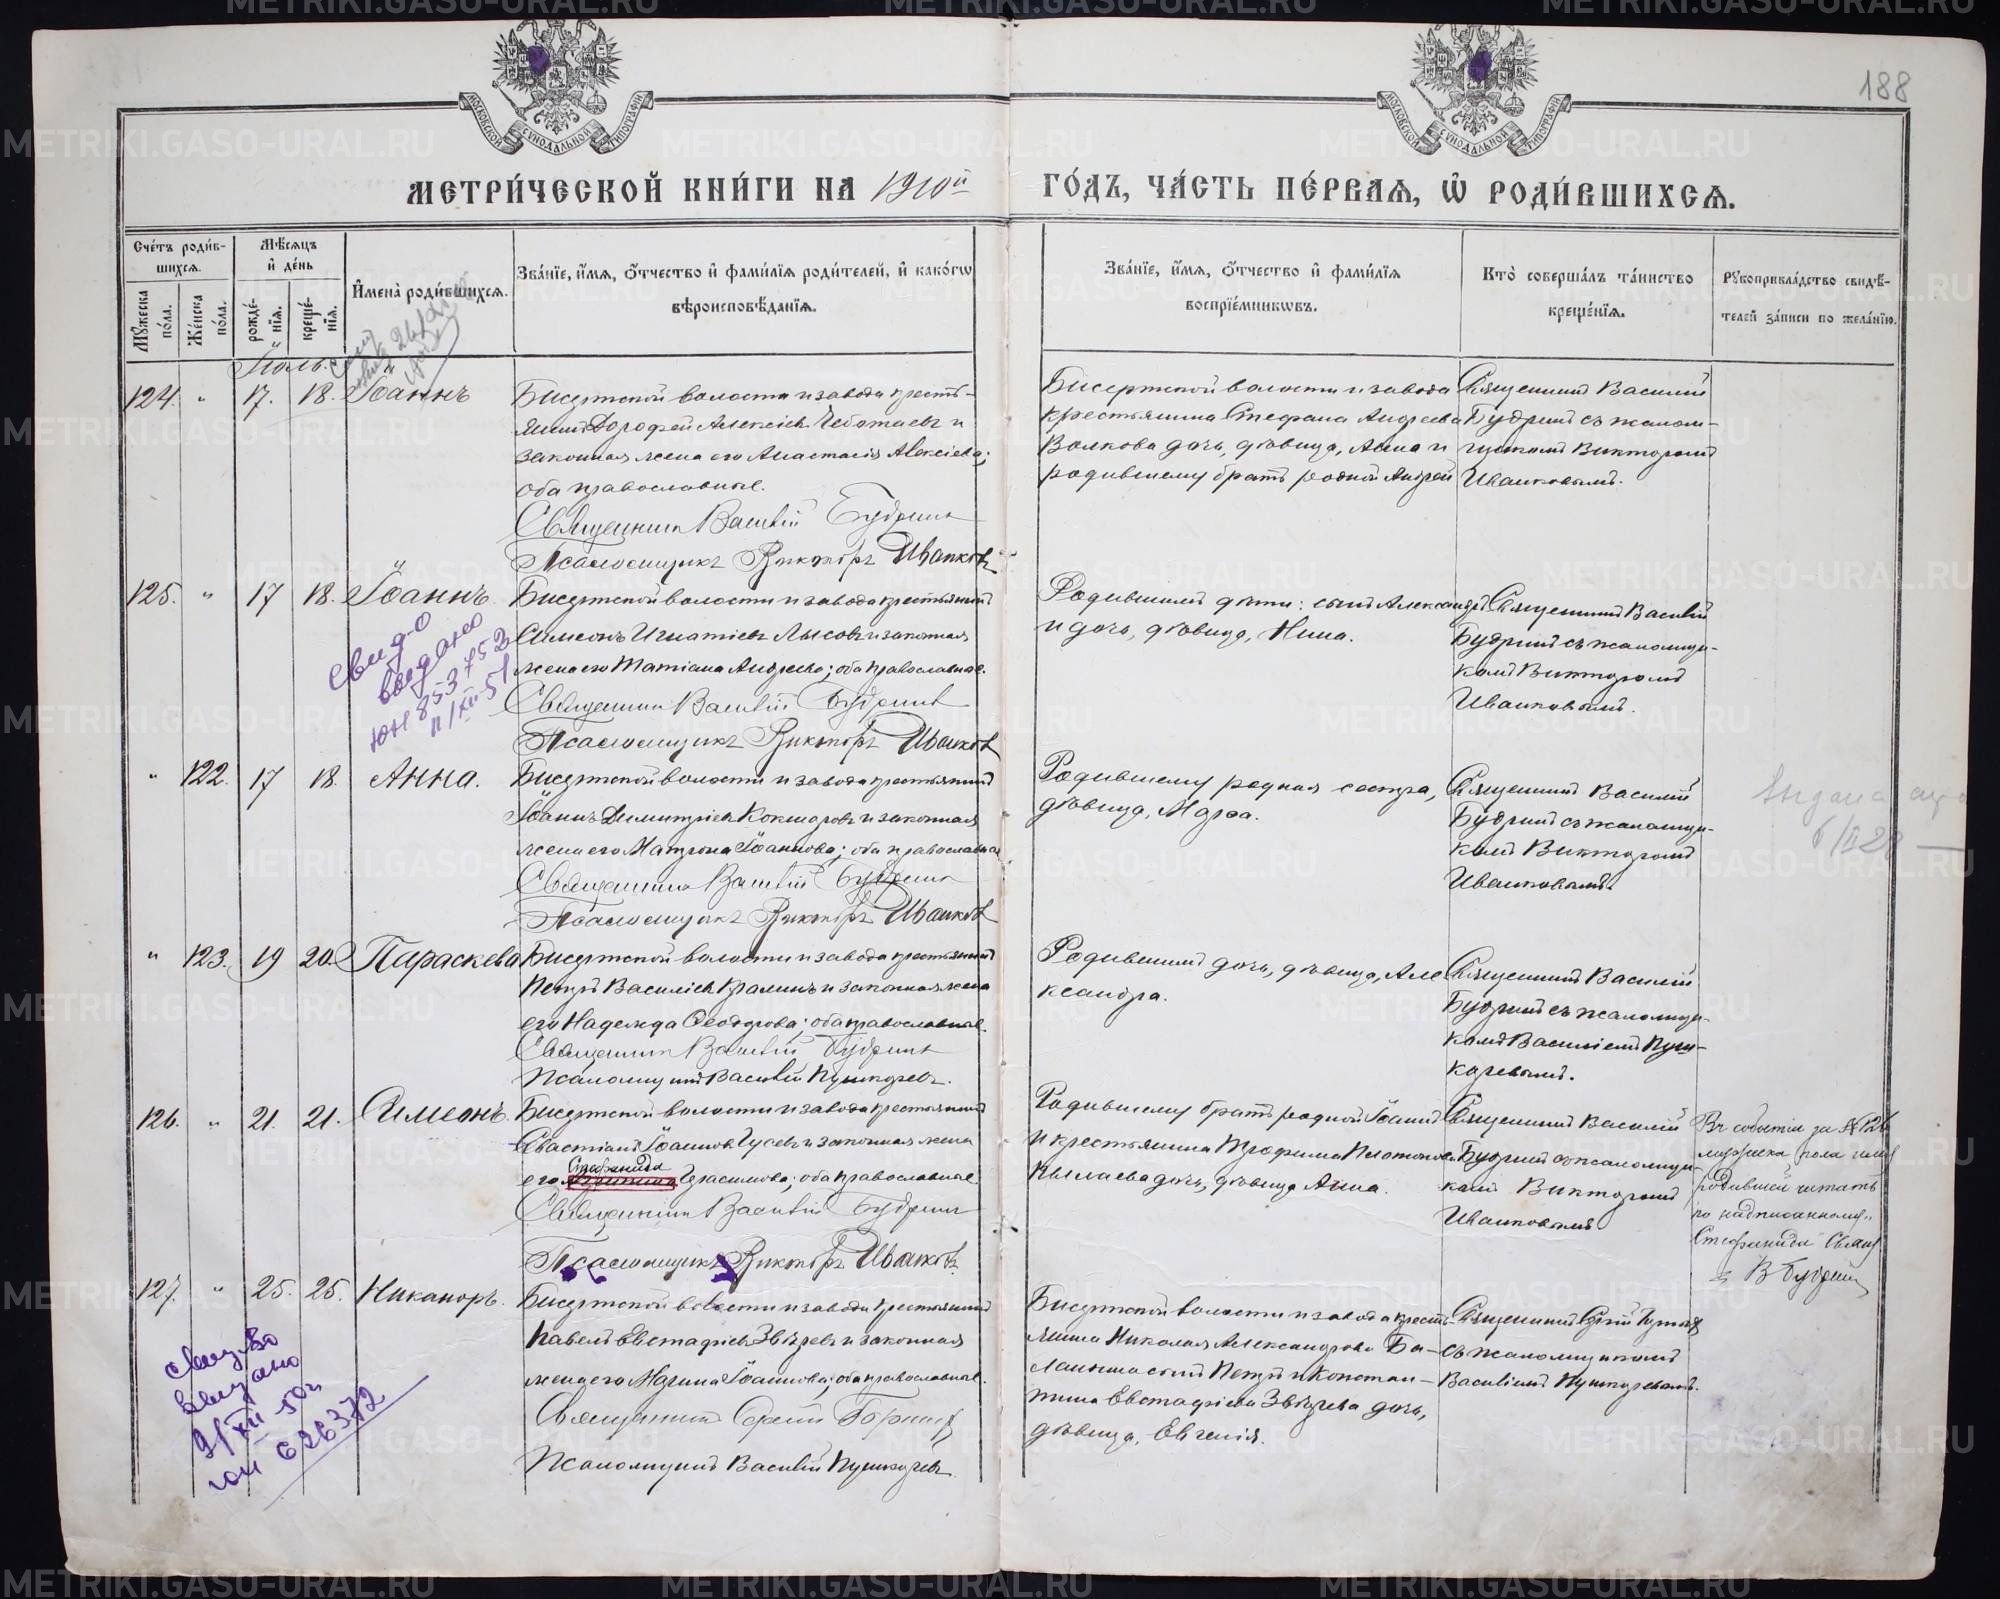 188
МОСКОВСКОЙ СѴНОДАЛЬНОЙ ТИПОГРАФІИ
МОСКОВСКОЙ СѴНОДАЛЬНОЙ ТИПОГРАФІИ
МЕТРИ́ЧЕСКОЙ КНИ́ГИ НА 1910й ГО́ДЪ, ЧА́СТЬ ПЕ́РВАЯ, Ѡ҆ РОДИ́ВШИХСЯ.
Сче́тъ роди́в-
шихся.
Мꙋ́жеска по́ла.
Же́нска по́ла.
Мѣ́сяцъ
и҆ де́нь
рожде́-
нїя.
креще́-
нїя.
И҆мена̀ роди́вшихся.
Зва́нїе, и҆́мя, ѻ҆́тчество и҆ фами́лїя роди́телей, и҆ како́гѡ
вѣроисповѣ́данїя.
Зва́нїе, и҆́мя, ѻ҆́тчество и҆ фами́лїя
воспрїе́мникѡвъ.
Кто̀ соверша́лъ та́инство
креще́нїя.
Рꙋкоприкла́дство свидѣ́-
телей за́писи по жела́нїю.
Іюль.
124. " 17. 18. Іоаннъ
Бисертской волости и завода кресть-
янинъ Дорофей Алексіевъ Чеботаевъ и
законная жена его Анастасія Алексіева;
оба православные.
Священникъ Василій Будринъ
Псаломщикъ Викторъ Иванковъ
Бисертской волости и завода
крестьянина Стефана Андреева
Волкова дочь, дѣвица, Анна и
родившему братъ родной Андрей
Священникъ Василій
Будринъ съ псалом-
щикомъ Викторомъ
Иванковымъ.
125. " 17 18. Іоаннъ
свид-о
выдано
ЮН 853752
11/XII-51
Бисертской волости и завода крестьянинъ
Симеонъ Игнатіевъ Лысовъ и законная
жена его Татіана Андреева; оба православные.
Священникъ Василій Будринъ
Псаломщикъ Викторъ Иванковъ
Родившимъ дѣти: сынъ Александръ
и дочь, дѣвица, Нина.
Священникъ Василій
Будринъ съ псаломщи-
комъ Викторомъ
Иванковымъ.
" 122. 17 18. Анна.
Бисертской волости и завода крестьянинъ
Іоаннъ Димитріевъ Кокшаровъ и законная
жена его Матрона Іоаннова; оба православные
Священникъ Василій Будринъ
Псаломщикъ Викторъ Иванковъ
Родившему родная сестра,
дѣвица, Марѳа.
Священникъ Василій
Будринъ съ псаломщи-
комъ Викторомъ
Иванковымъ.
Выдана
" 123. 19 20. Параскева
Бисертской волости и завода крестьянинъ
Петръ Василіевъ Кралинъ и законная жена
его Надежда Ѳеодорова; оба православные.
Священникъ Василій Будринъ
Псаломщикъ Василій Пушкаревъ.
Родившимъ дочь, дѣвица, Але-
ксандра.
Священникъ Василій
Будринъ съ псаломщи-
комъ Василіемъ Пуш-
каревымъ.
126. " 21. 21. Симеонъ.
Бисертской волости и завода крестьянинъ
Севастіанъ Іоанновъ Гусевъ и законная жена
Стефанида
его Герасимова; оба православные
Священникъ Василій Будринъ
Псаломщикъ Викторъ Иванковъ.
Родившему братъ родной Іоаннъ
и крестьянина Трофима Платонова
Кылаева дочь, дѣвица Анна.
Священникъ Василій
Будринъ съ псаломщи-
комъ Викторомъ
Иванковымъ
Въ событіи за № 126
мужеска пола имя
родившей читать
по надписанному:
Стефанида Свящ
В Будринъ
127. " 25. 25. Никаноръ.
выдано
9/XII-50г
626372
Бисертской волости и завода крестьянинъ
Павелъ Евстафіевъ Звѣревъ и законная
жена его Марина Іоаннова; оба православные.
Священникъ Сергій
Псаломщикъ Василій Пушкаревъ
Бисертской волости и завода кресть-
янина Николая Александрова Ба-
ланъина сынъ Петръ и Констан-
тина Евстафіева Звѣрева дочь,
дѣвица, Евгенія.
Священникъ Сергій
съ псаломщикомъ
Василіемъ Пушкаревымъ.
METRIKI.GASO-URAL.RU